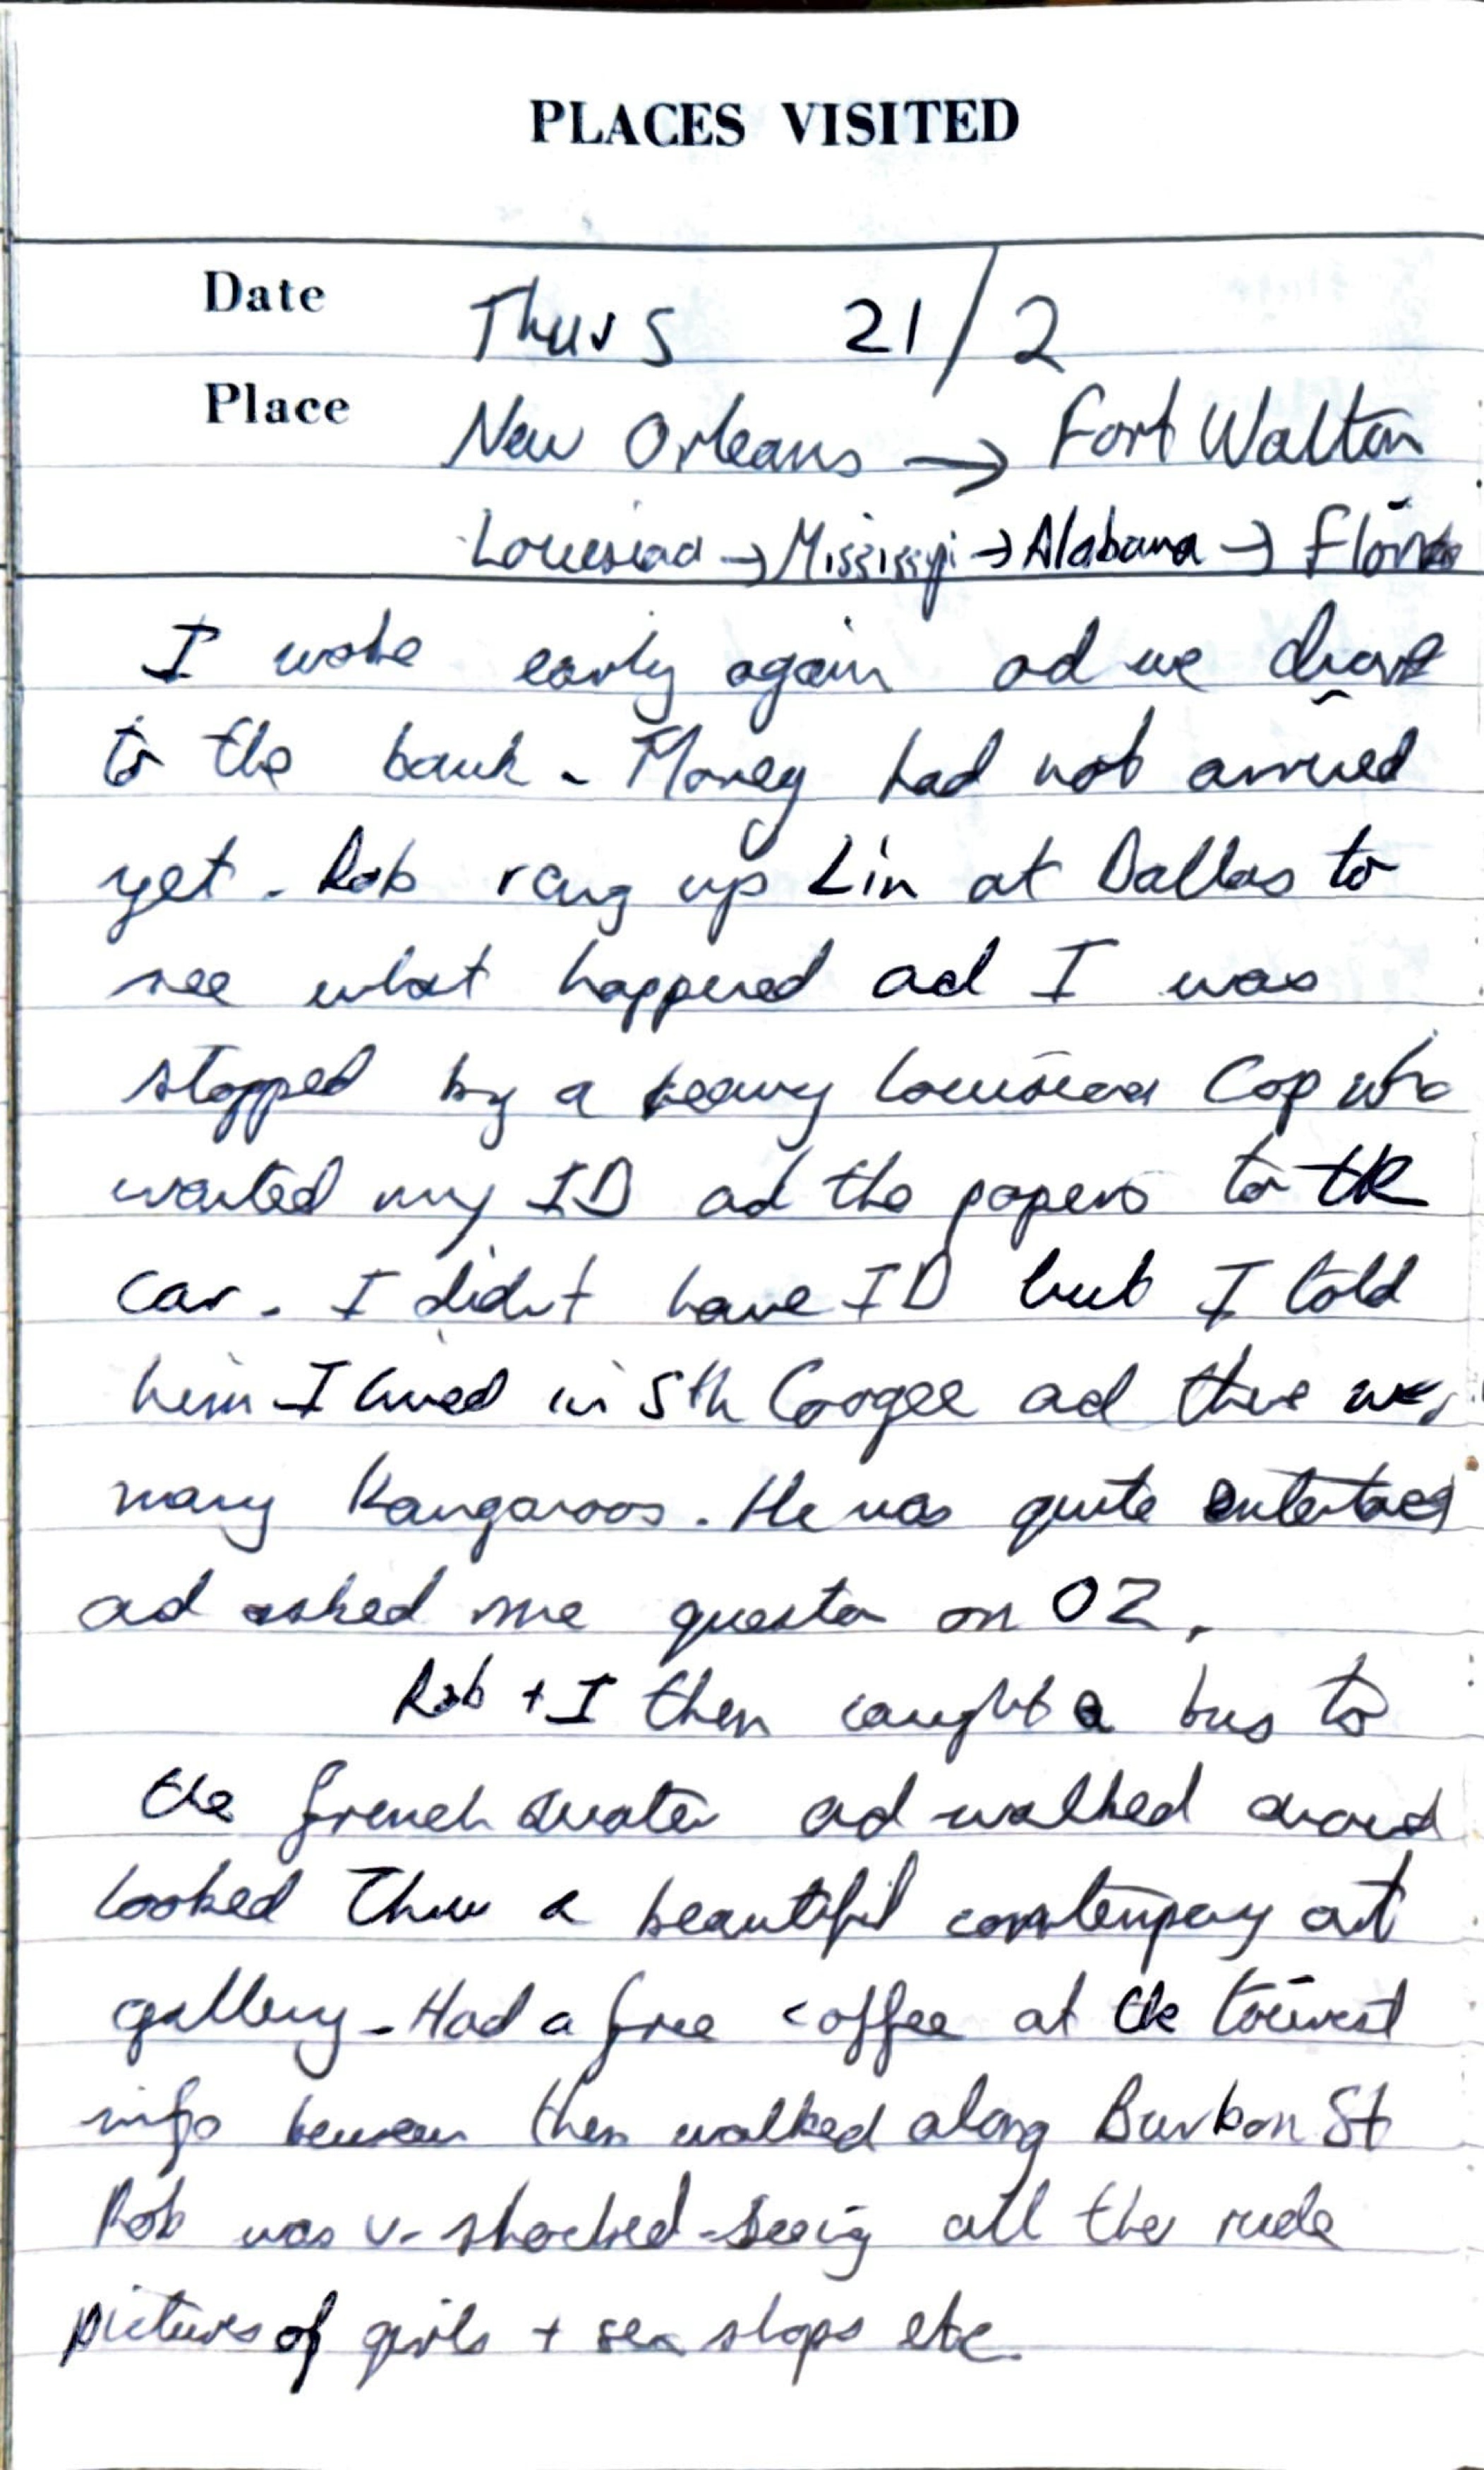 PLACES VISITED
Date Thurs 21/2
Place New Orleans → Fort Walton
Louisiad → Mississippi → Alabama → Florida
I woke early again ad we drove
to the bank - Money had not arrived
yet. Rob rang up Lin at Dallas to
see what happened ad I was
stopped by a heavy Louisiana Cop who
wanted my ID ad the papers to the
car. I didnt have ID but I told
him I lived in Sth Coogee ad there were
many Kangaroos. He was quite entertaied
ad asked me questo on OZ.
Rob + I then caught a bus to
the french Quater ad walked aroud
looked Thru a beautiful contempary art
gallery - Had a free coffee at the tourist
info bereau then walked along Burbon St
Rob was v. shocked - seeig all the rude
pictures of girls + sex shops etc.